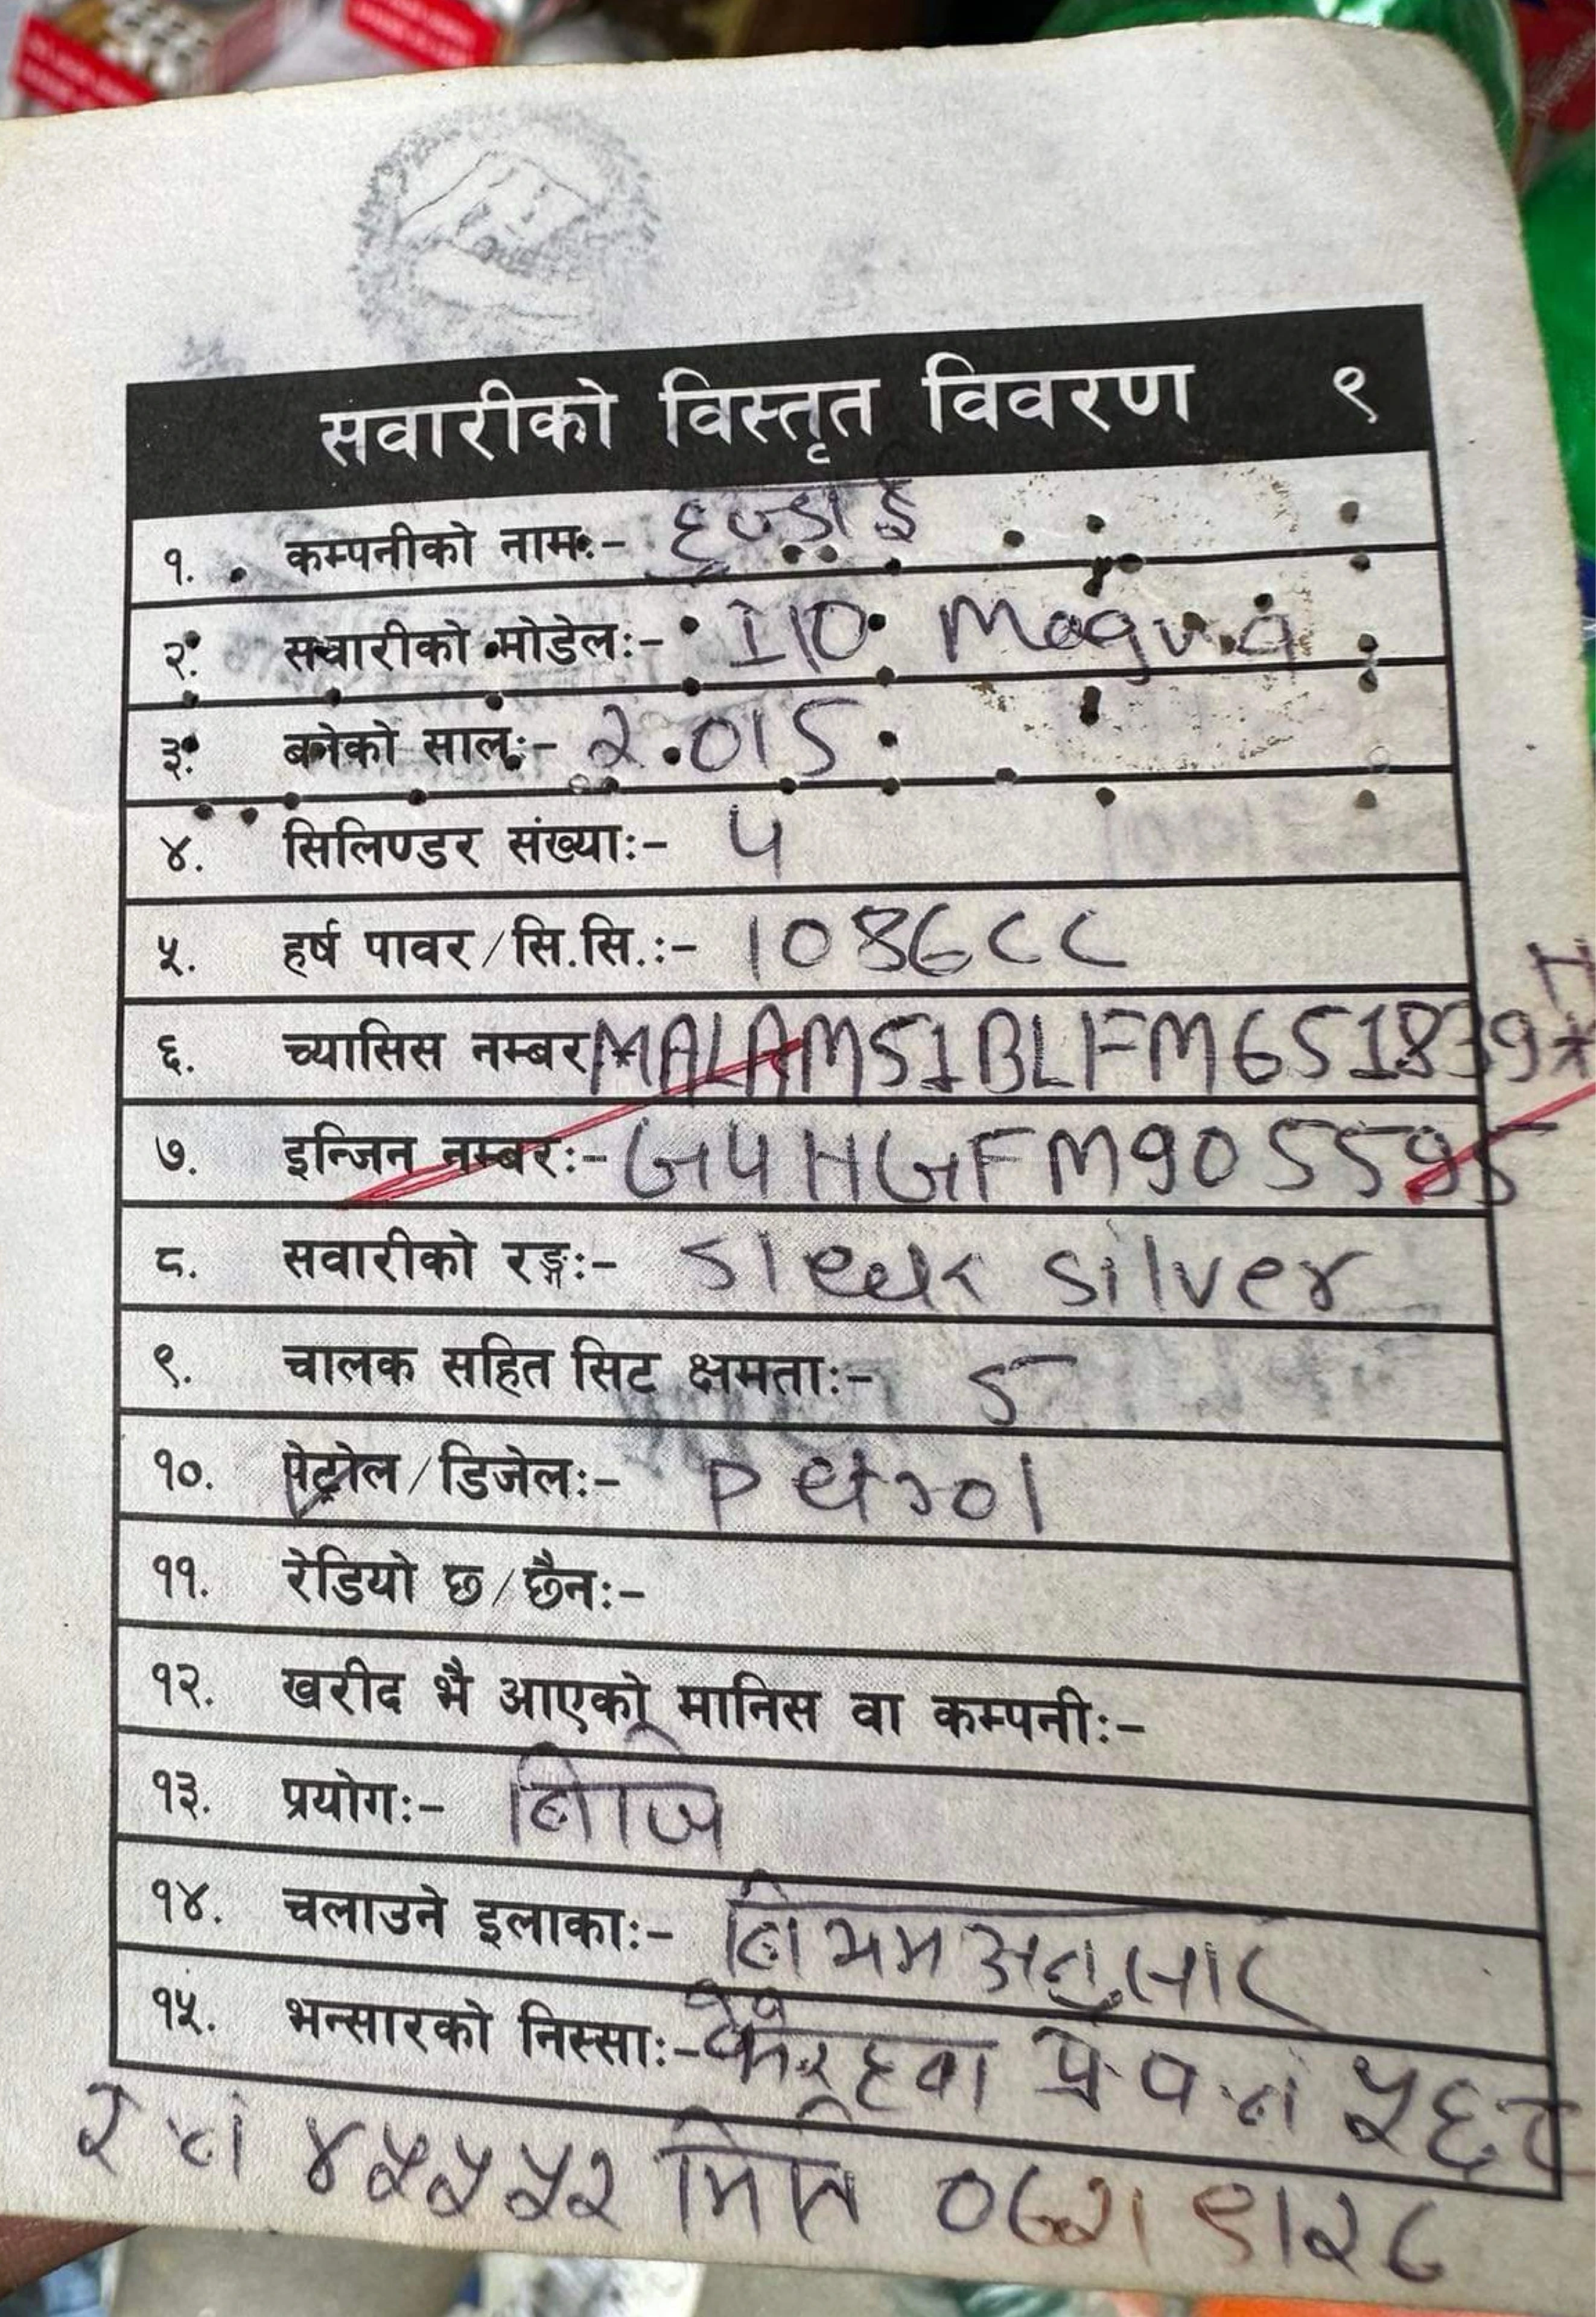 सवारीको विस्तृत विवरण ९
१. कम्पनीको नामः- हुण्डाई
२. सवारीको मोडेलः- I10 Magna
३. बनेको सालः- २.015
४. सिलिण्डर संख्याः- 4
५. हर्ष पावर/सि.सि.ः- 1086CC
६. च्यासिस नम्बर MALAM51BLFM651839*
७. इन्जिन नम्बरः- G4HGFM905595
८. सवारीको रङ्गः- Sleek silver
९. चालक सहित सिट क्षमताः- 5
१०. पेट्रोल/डिजेलः- petrol
११. रेडियो छ/छैनः-
१२. खरीद भै आएको मानिस वा कम्पनीः-
१३. प्रयोगः- निजि
१४. चलाउने इलाकाः- नियम अनुसार
१५. भन्सारको निस्साः- भैरहवा प्र प नं ५६८
र नं ४५५५२ मिति